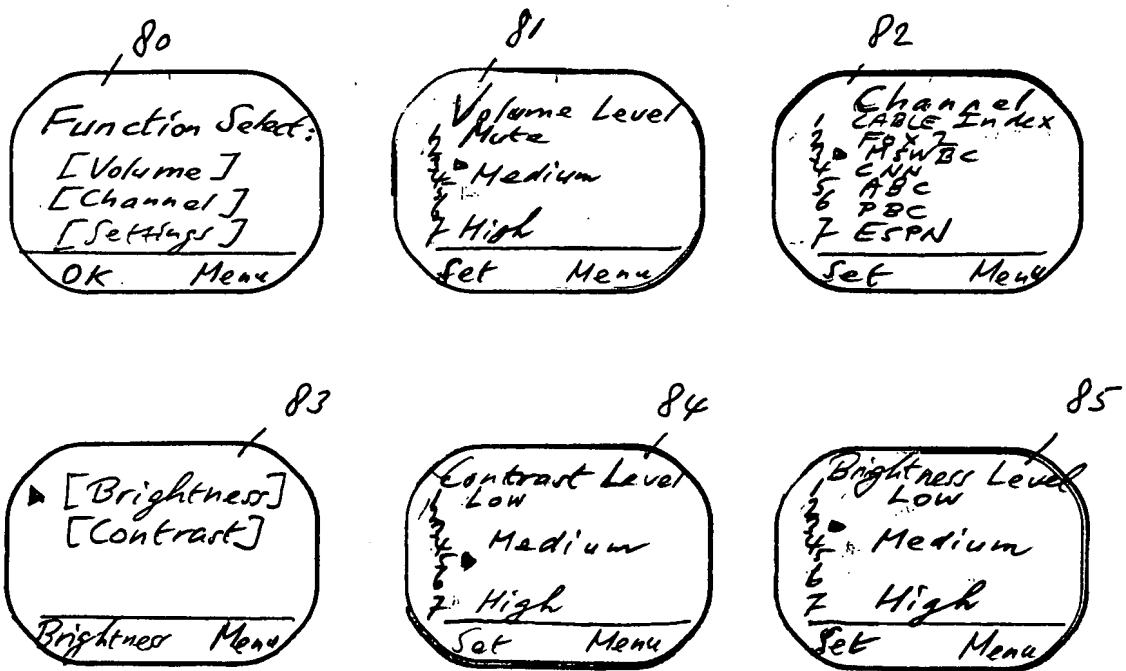 80
Function Select:
[Volume]
[Channel]
[Settings]
OK Menu
81
Volume Level
Mute
Medium
7 High
Set Menu
82
Channel
1 CABLE Index
2 FOX 2
3 MSWBC
4 CNN
5 ABC
6 PBC
7 ESPN
Set Menu
83
[Brightness]
[Contrast]
Brightness Menu
84
Contrast Level
Low
Medium
7 High
Set Menu
85
Brightness Level
Low
Medium
6
7 High
Set Menu